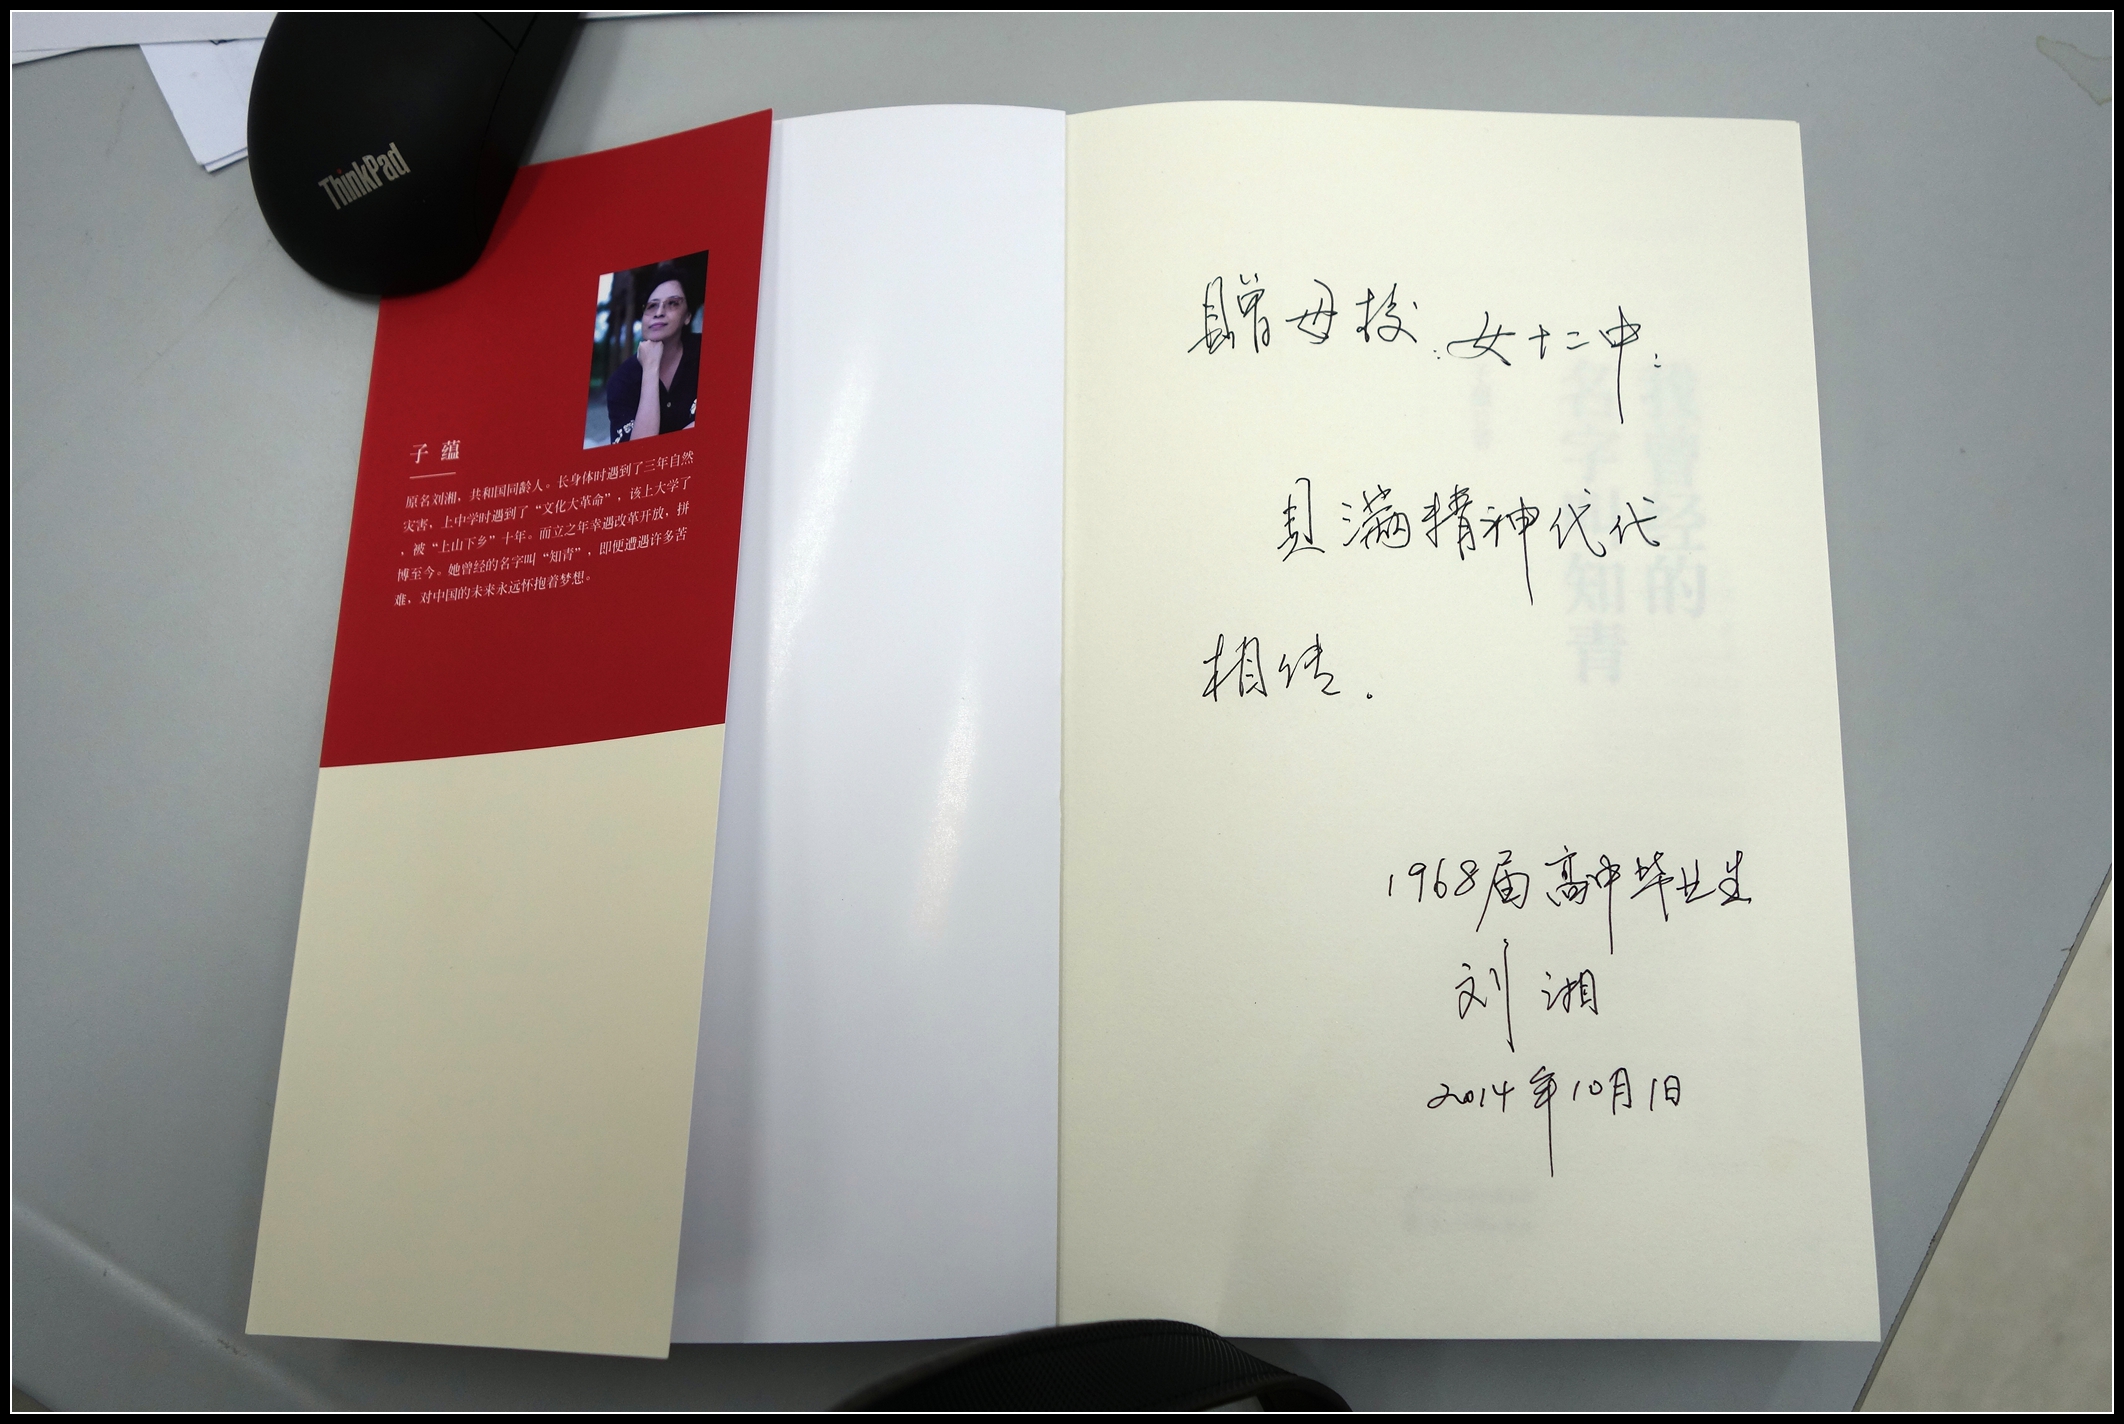 ThinkPad
子 蕴
原名刘湘，共和国同龄人。长身体时遇到了三年自然
灾害，上中学时遇到了“文化大革命”，该上大学了
，被“上山下乡”十年。而立之年幸遇改革开放，拼
博至今。她曾经的名字叫“知青”，即便遭遇许多苦
难，对中国的未来永远怀抱着梦想。
赠母校：女十二中：
贝满精神代代
相传.
1968届高中毕业生
刘湘
2014年10月1日
我曾经的
名字叫知青